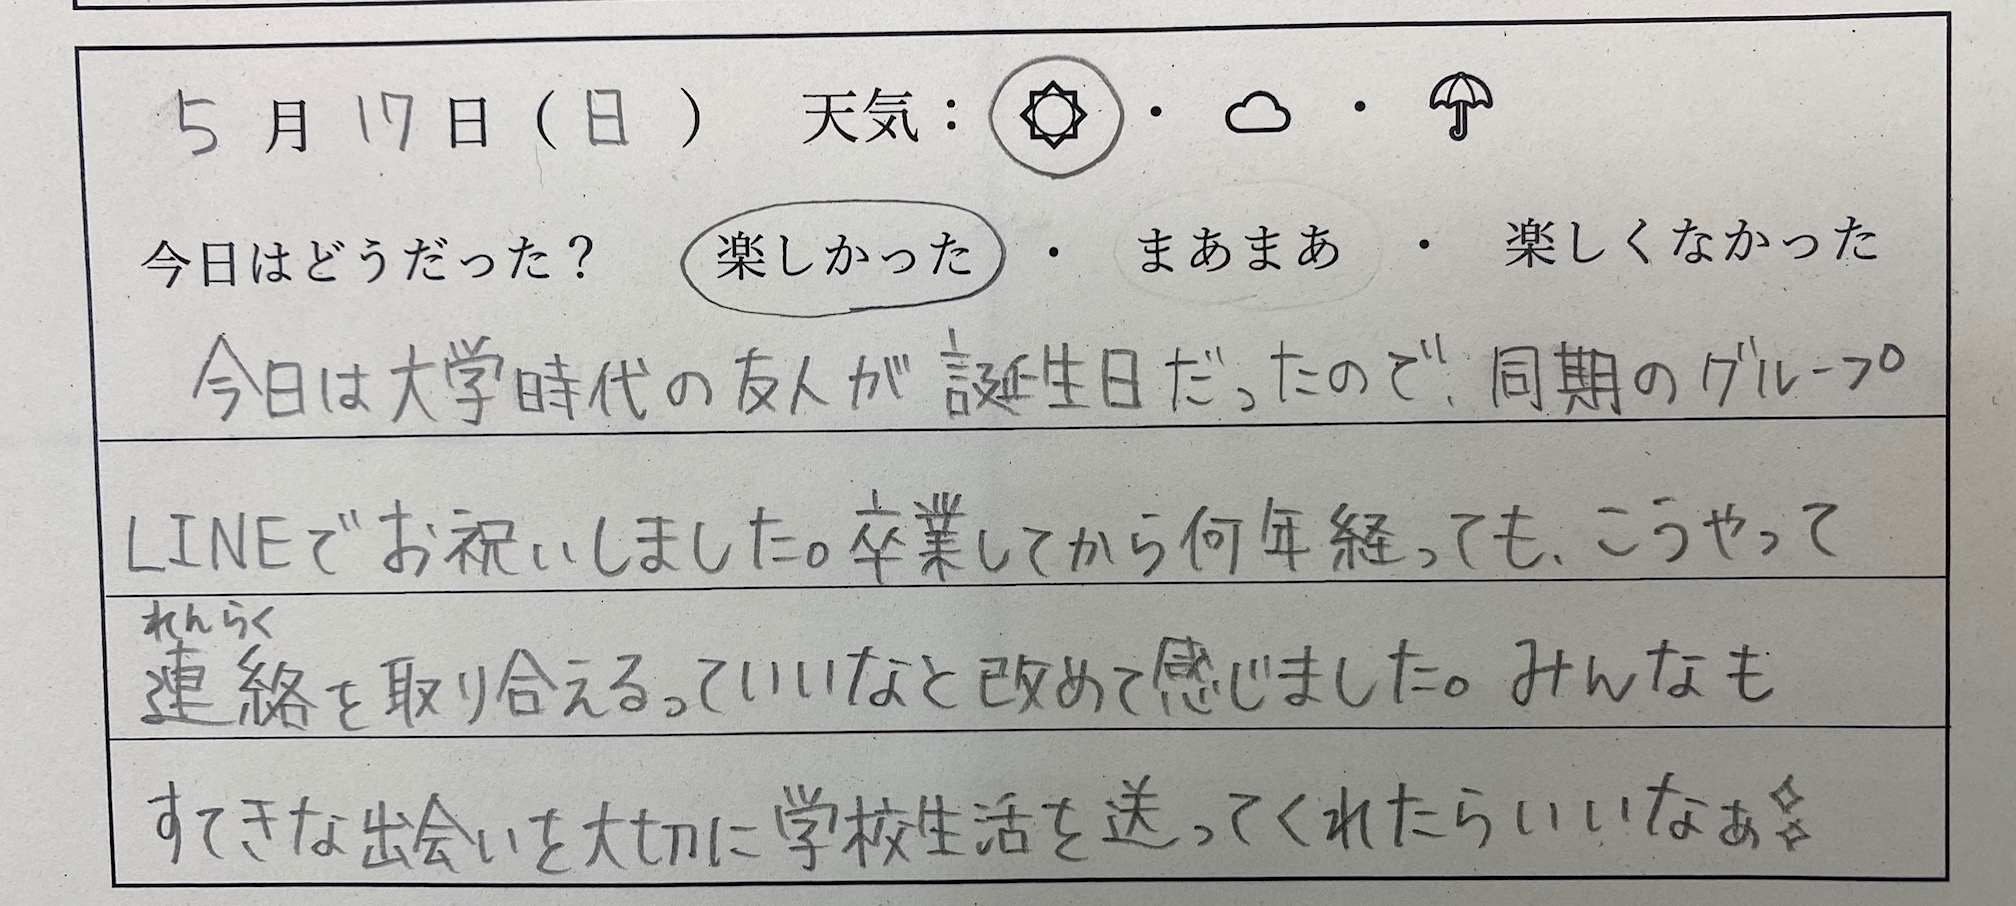 5月17日(日) 天気：☀・☁・☂
今日はどうだった？ 楽しかった・まあまあ・楽しくなかった
今日は大学時代の友人が誕生日だったので、同期のグループ
LINEでお祝いしました。卒業してから何年経っても、こうやって
れんらく
連絡を取り合えるっていいなと改めて感じました。みんなも
すてきな出会いを大切に学校生活を送ってくれたらいいなぁ✨